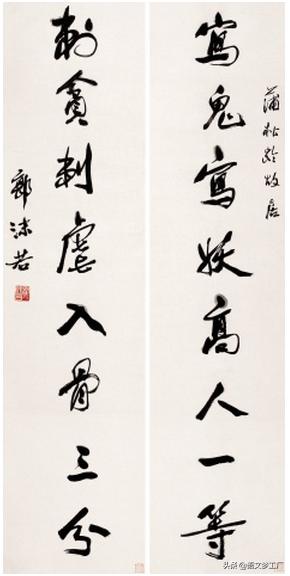 蒲松龄故居
寫鬼寫妖高人一等
刺貪刺虐入骨三分
郭沫若
头条 @语文梦工厂